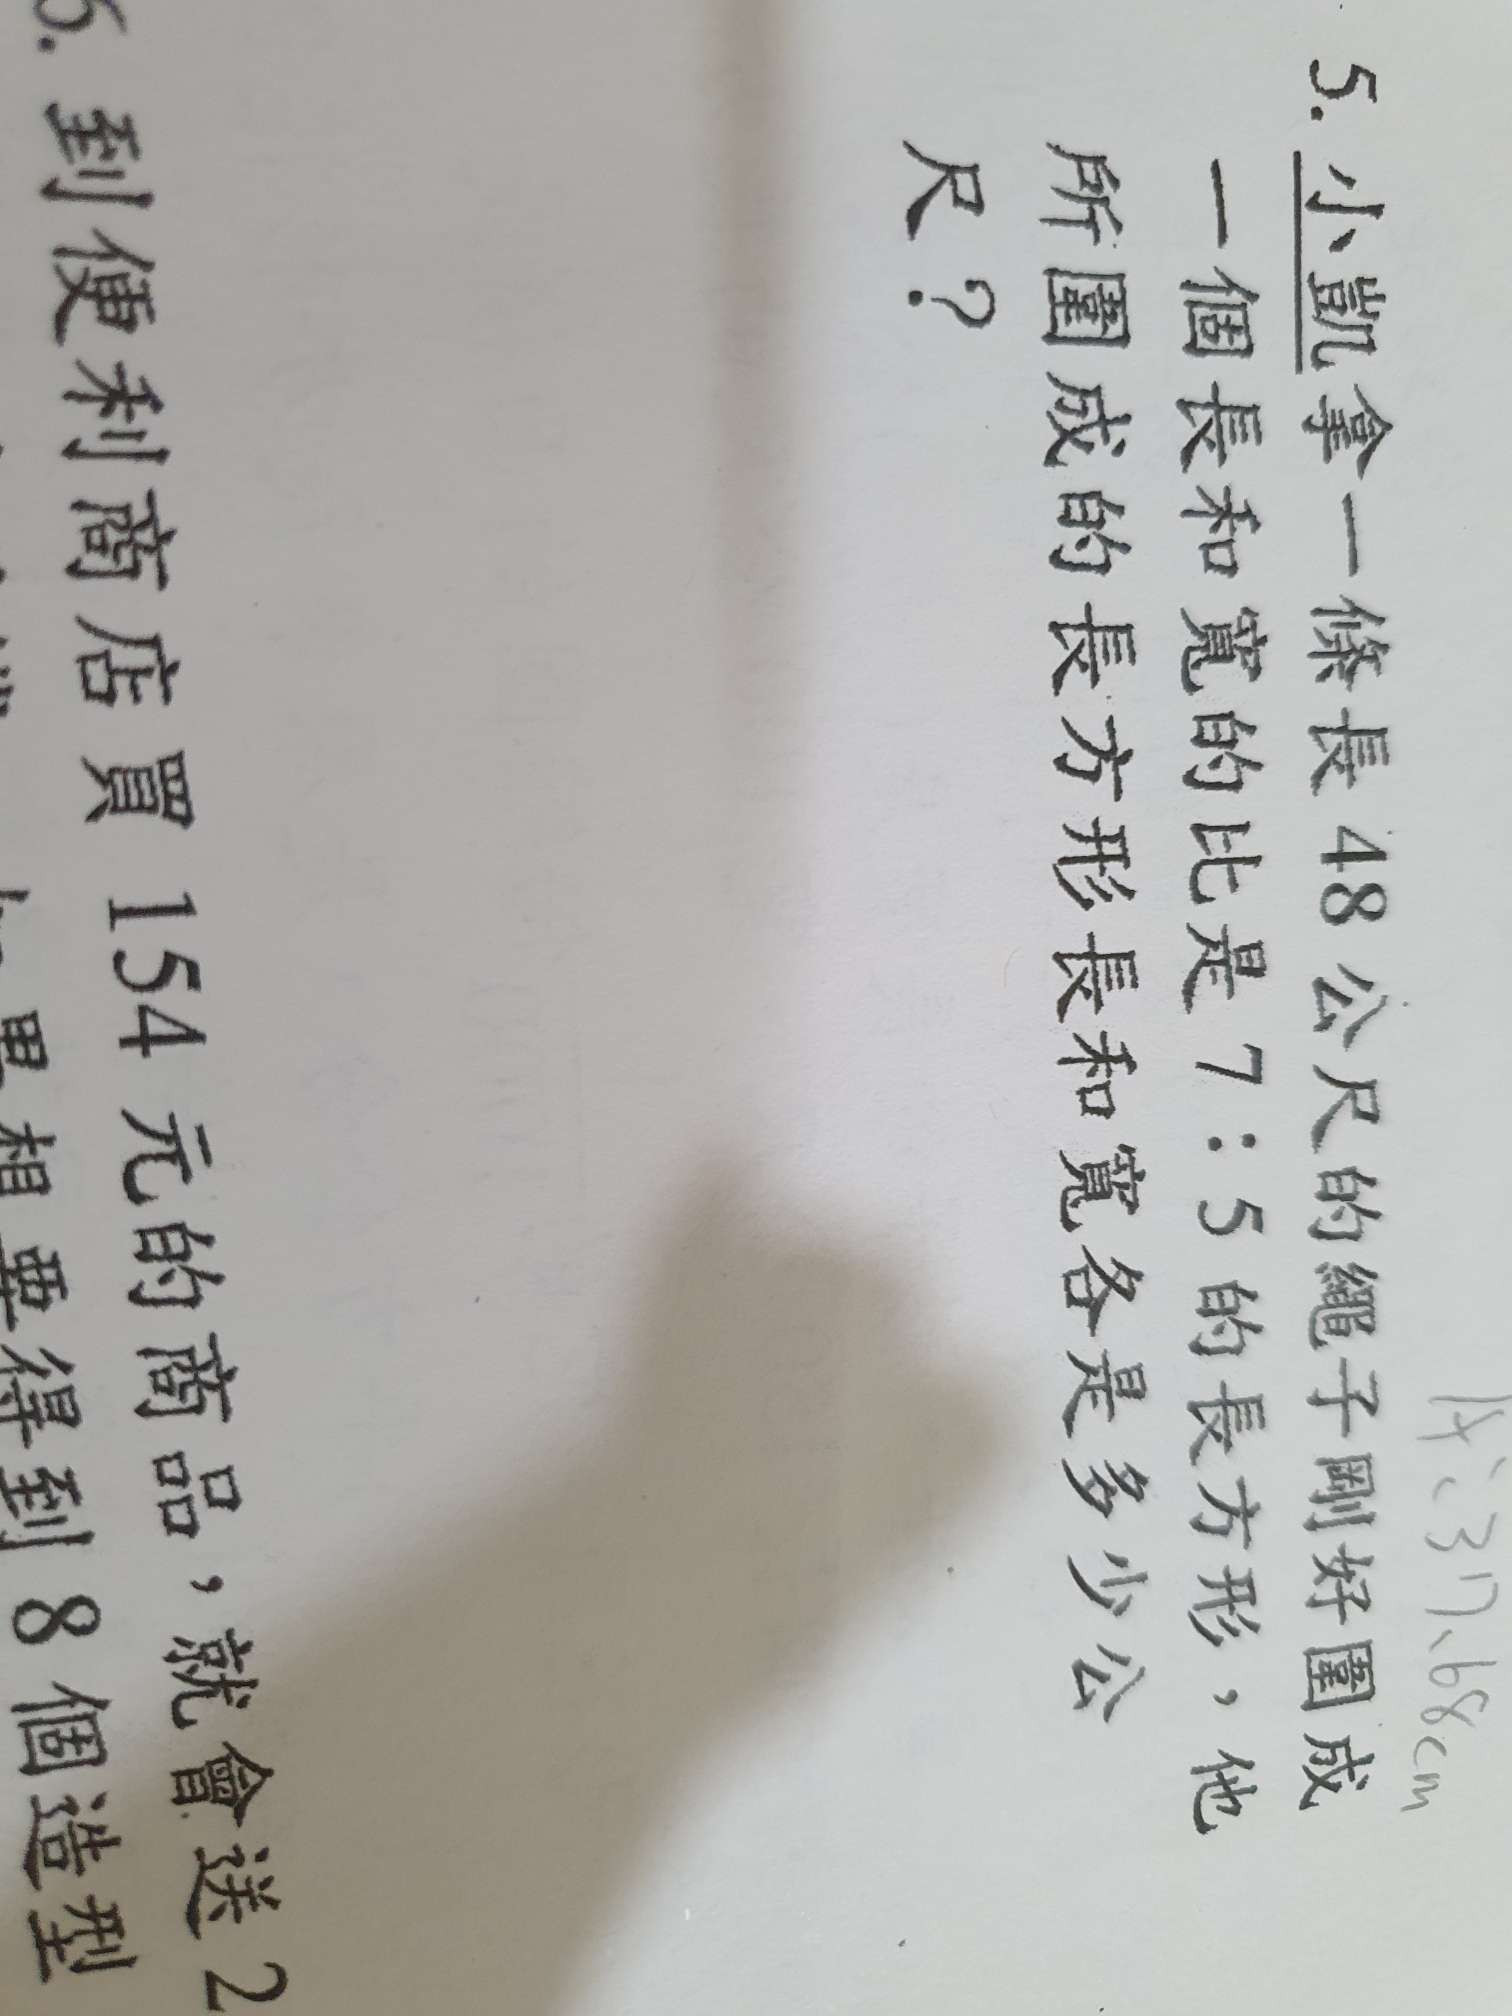 37.68cm
5. 小凱拿一條長 48 公尺的繩子剛好圍成
一個長和寬的比是 7:5 的長方形，他
所圍成的長方形長和寬各是多少公
尺？
6. 到便利商店買 154 元的商品，就會送 2
果想要得到 8 個造型